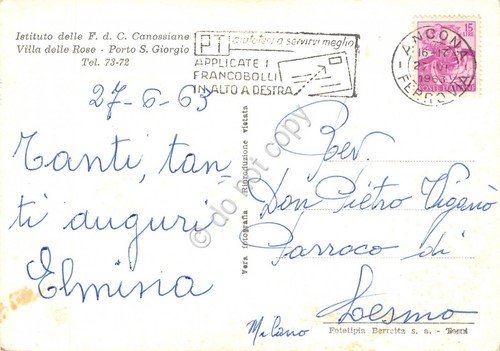 Istituto delle F. d. C. Canossiane
Villa delle Rose - Porto S. Giorgio
Tel. 73-72
PT aiutateci a servirvi meglio
APPLICATE I
FRANCOBOLLI
IN ALTO A DESTRA
ANCONA
FERROVIA
1963
15
LIRE
POSTE ITALIANE
27-6-63
Tanti, tan-
ti auguri
Elmina
Vera fotografia
Riproduzione vietata
do not copy
Rev.
Don Pietro Viganò
Parroco di
Lesmo
Milano
Fototipia Berretta s. a. - Terni